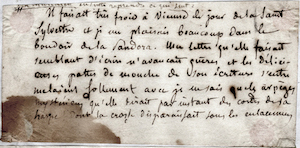 Il faisait très froid à Vienne le jour de la Saint
Sylvestre et je me plaisais beaucoup dans le
boudoir de la Sandora. Une lettre qu'elle faisait
semblant d'écrire n'avançait guères et les délici-
euses pattes de mouche de son écriture s'entre
mêlaient follement avec je ne sais quels arpèges
mystérieux qu'elle tirait par instant des cordes de la
harpe dont la crosse disparaissait sous les enlacements